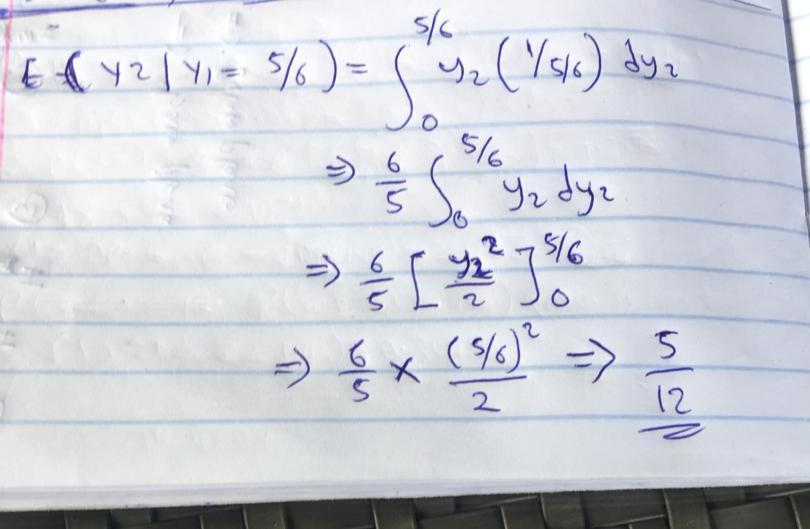 E(Y2 | Y1 = 5/6) = ∫₀^{5/6} y₂ (1/5/6) dy₂
⇒ 6/5 ∫₀^{5/6} y₂ dy₂
⇒ 6/5 [y₂²/2]₀^{5/6}
⇒ 6/5 × (5/6)²/2 ⇒ 5/12